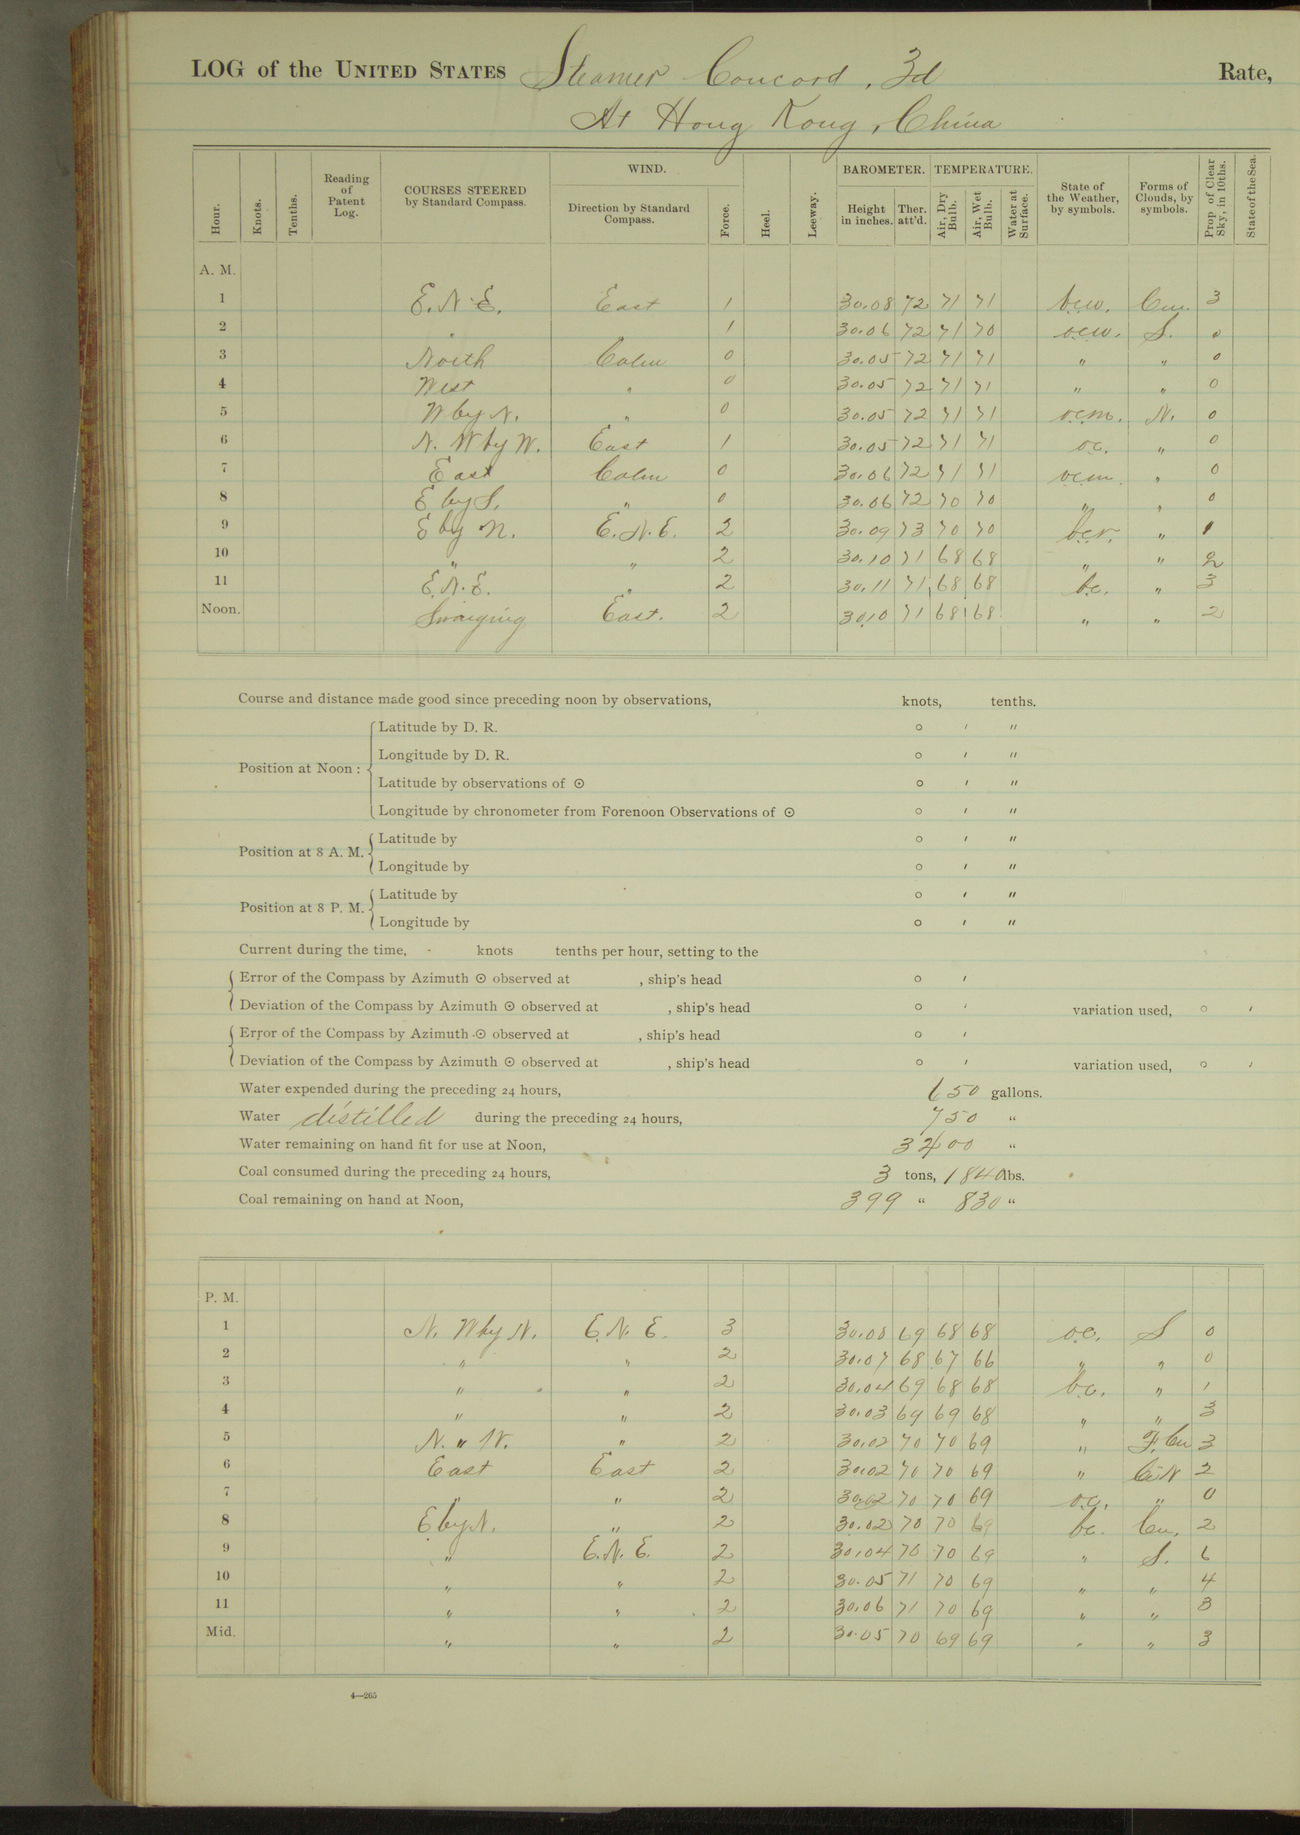 LOG of the UNITED STATES Steamer Concord, 3d Rate,
At Hong Kong, China
Hour. Knots. Tenths. Reading of Patent Log. COURSES STEERED by Standard Compass. WIND. Direction by Standard Compass. Force. Heel. Leeway. BAROMETER. Height in inches. Ther. att'd. TEMPERATURE. Air, Dry Bulb. Air, Wet Bulb. Water at Surface. State of the Weather, by symbols. Forms of Clouds, by symbols. Prop. of Clear Sky, in 10ths. State of the Sea.
A. M.
1 E.N.E. East 1 30.08 72 71 71 bcw. Cu. 3
2 " 1 30.06 72 71 70 ocw. S. 0
3 North Calm 0 30.05 72 71 71 " " 0
4 West " 0 30.05 72 71 71 " " 0
5 W by N. " 0 30.05 72 71 71 ocm. N. 0
6 N. W by W. East 1 30.05 72 71 71 oc. " 0
7 East Calm 0 30.06 72 71 71 ocm " 0
8 E by S. " 0 30.06 72 70 70 " " 0
9 E by N. E.N.E. 2 30.09 73 70 70 bcr. " 1
10 " " 2 30.10 71 68 68 " " 2
11 E.N.E. " 2 30.11 71 68 68 bc. " 3
Noon. Swinging East. 2 30.10 71 68 68 " " 2
Course and distance made good since preceding noon by observations, knots, tenths.
Position at Noon: Latitude by D. R. ° ′ ″
Longitude by D. R. ° ′ ″
Latitude by observations of ☉ ° ′ ″
Longitude by chronometer from Forenoon Observations of ☉ ° ′ ″
Position at 8 A. M. Latitude by ° ′ ″
Longitude by ° ′ ″
Position at 8 P. M. Latitude by ° ′ ″
Longitude by ° ′ ″
Current during the time, knots tenths per hour, setting to the
Error of the Compass by Azimuth ☉ observed at , ship's head ° ′
Deviation of the Compass by Azimuth ☉ observed at , ship's head ° ′ variation used, ° ′
Error of the Compass by Azimuth ☉ observed at , ship's head ° ′
Deviation of the Compass by Azimuth ☉ observed at , ship's head ° ′ variation used, ° ′
Water expended during the preceding 24 hours, 650 gallons.
Water distilled during the preceding 24 hours, 750 "
Water remaining on hand fit for use at Noon, 3400 "
Coal consumed during the preceding 24 hours, 3 tons, 1840 lbs.
Coal remaining on hand at Noon, 399 " 830 "
P. M.
1 N. W by N. E.N.E. 3 30.08 69 68 68 oc. S 0
2 " " 2 30.07 68 67 66 " " 0
3 " " 2 30.04 69 68 68 bc. " 1
4 " " 2 30.03 69 69 68 " " 3
5 N. " W. " 2 30.02 70 70 69 " F. Cu 3
6 East East 2 30.02 70 70 69 " 2
7 " " 2 30.02 70 70 69 oc. " 0
8 E by N. " 2 30.02 70 70 69 bc. Cu. 2
9 " E.N.E. 2 30.04 70 70 69 " S. 6
10 " " 2 30.05 71 70 69 " " 4
11 " " 2 30.06 71 70 69 " " 3
Mid. " " 2 30.05 70 69 69 " " 3
4—265